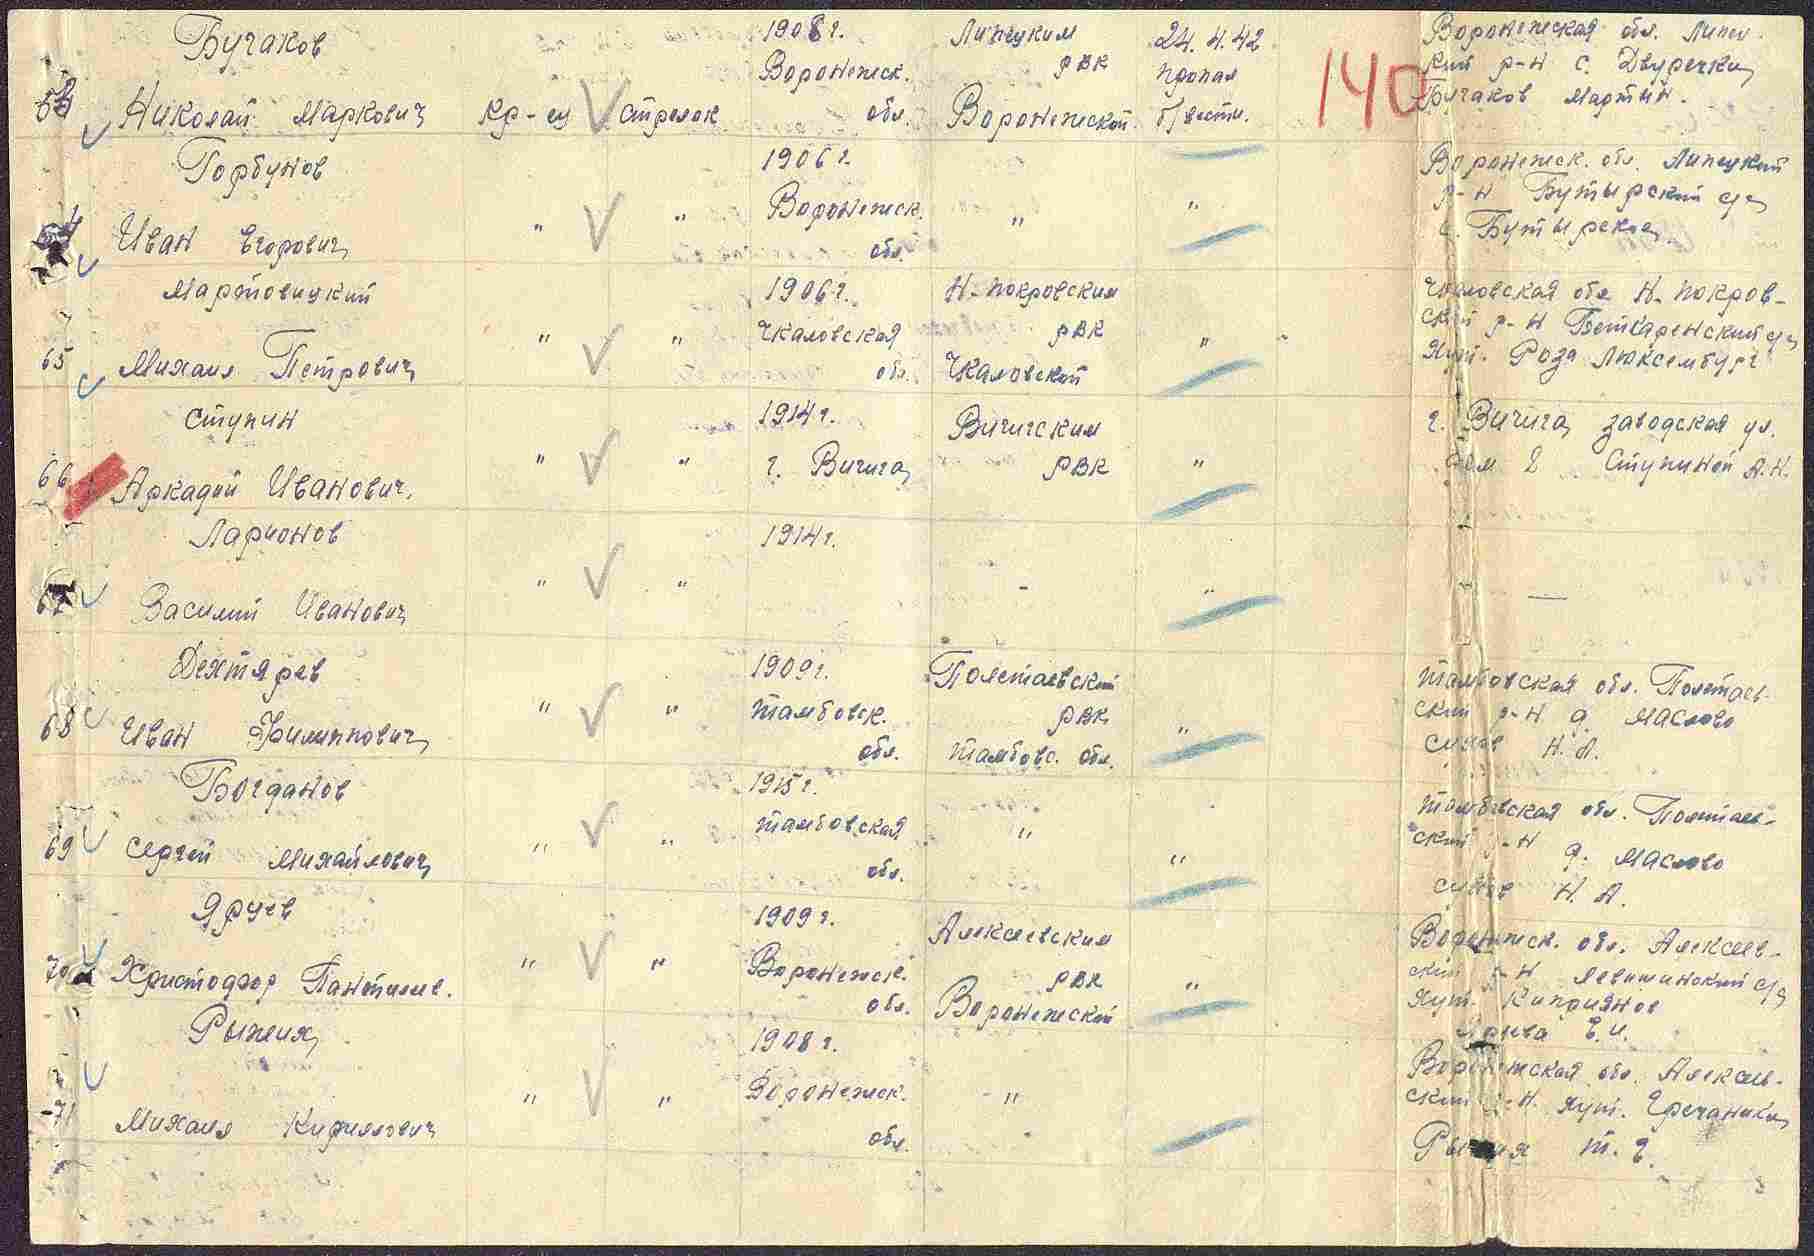 Бучаков 1908 г. Липецким 24.4.42 Воронежская обл. Липец-
Воронежск. РВК пропал кий р-н с. Двуречки
63 Николай Маркович кр-ец стрелок обл. Воронежской б/вести. 140 Бучаков Мартин.
Горбунов 1906 г. Воронежск. обл. Липецкий
Воронежск. р-н Бутырский с/с
64 Иван Егорович " " обл. " " с. Бутырское
Мартовицкий 1906 г. Н-Покровским Чкаловская обл. Н-Покров-
" " Чкаловская РВК " ский р-н с/с
65 Михаил Петрович обл. Чкаловской хут. Роза Люксембург
Ступин 1914 г. Вичугским г. Вичуга, заводская ул.
66 Аркадий Иванович. " " г. Вичуга РВК " дом 2 Ступиной А.Н.
Ларионов 1914 г.
67 Василий Иванович " " - " —
Дехтярев 1909 г. Полетаевский Тамбовская обл. Полетаев-
68 " " Тамбовск. РВК " ский р-н д. Маслово
Иван Филиппович обл. Тамбовс. обл. Н. А.
Богданов 1915 г. Тамбовская обл. Полетаев-
69 " " Тамбовская " " ский р-н д. Маслово
Сергей Михайлович обл. Н. А.
Яруев 1909 г. Алексеевским Воронежск. обл. Алексеев-
70 Христофор Пантилее. " " Воронежск. РВК " ский р-н с/с
обл. Воронежской хут. Киприянов
Е. И.
Рыжих 1908 г. Воронежская обл. Алексеев-
71 " " Воронежск. " ский р-н. хут. Гречаники
Михаил Кириллович обл. Рыжих Т. Г.